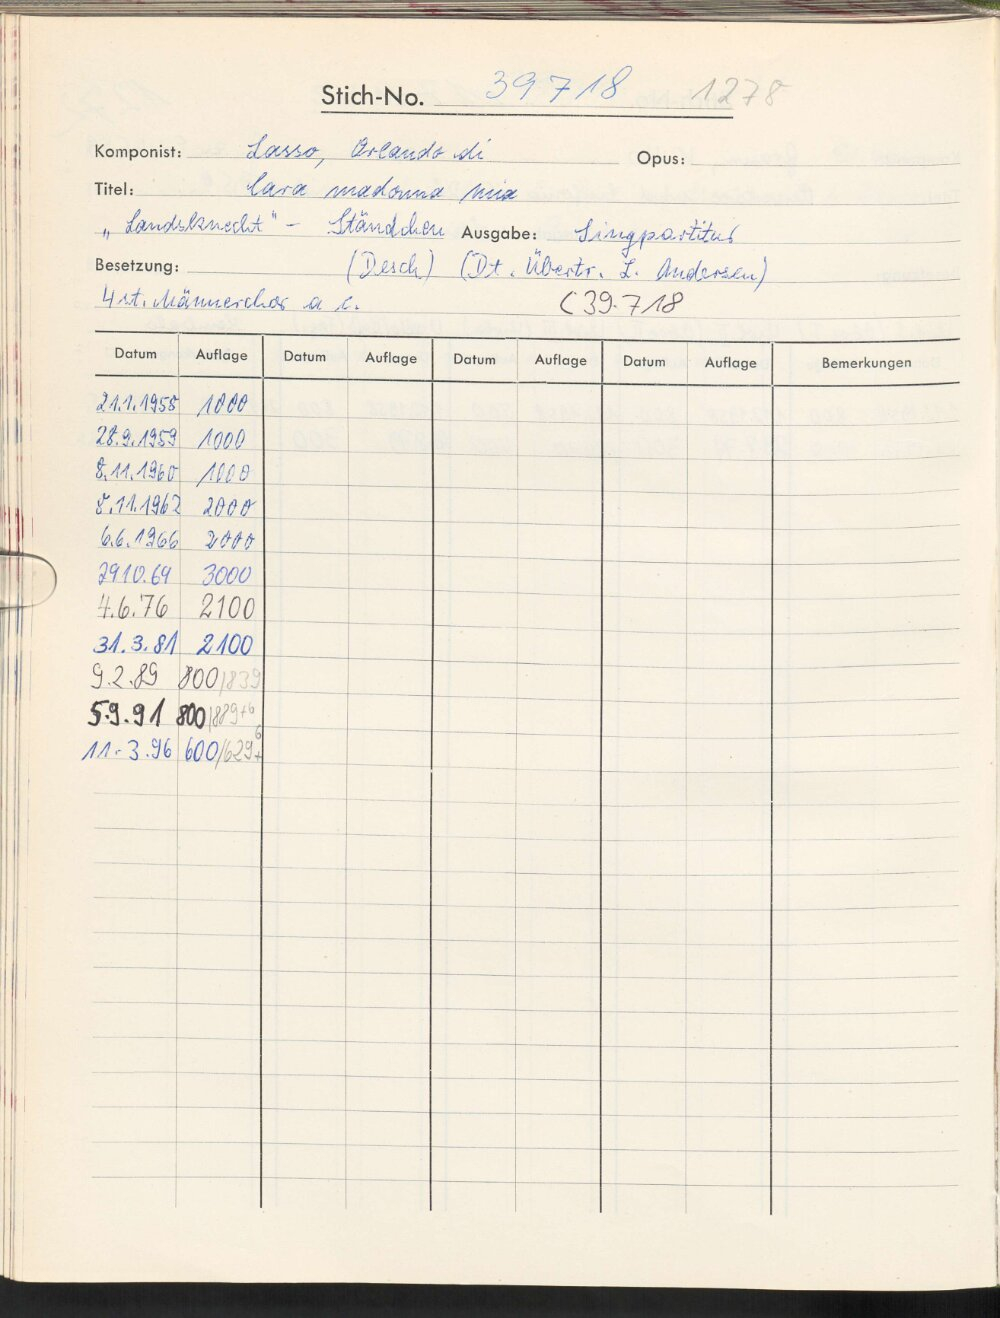 Stich-No. 39718 1278
Komponist: Lasso, Orlando di Opus:
Titel: Cara madonna mia
„Landsknecht" - Ständchen Ausgabe: Singpartitur
Besetzung: (Desch) (Dt. Übertr. L. Andersen)
4 st. Männerchor a c. C 39.718
Datum Auflage Datum Auflage Datum Auflage Datum Auflage Bemerkungen
21.1.1958 1000
28.9.1959 1000
8.11.1960 1000
8.11.1962 2000
6.6.1966 2000
2910.69 3000
4.6.76 2100
31.3.81 2100
9.2.89 800/839
5.9.91 800/889+6
11.3.96 600/629+6